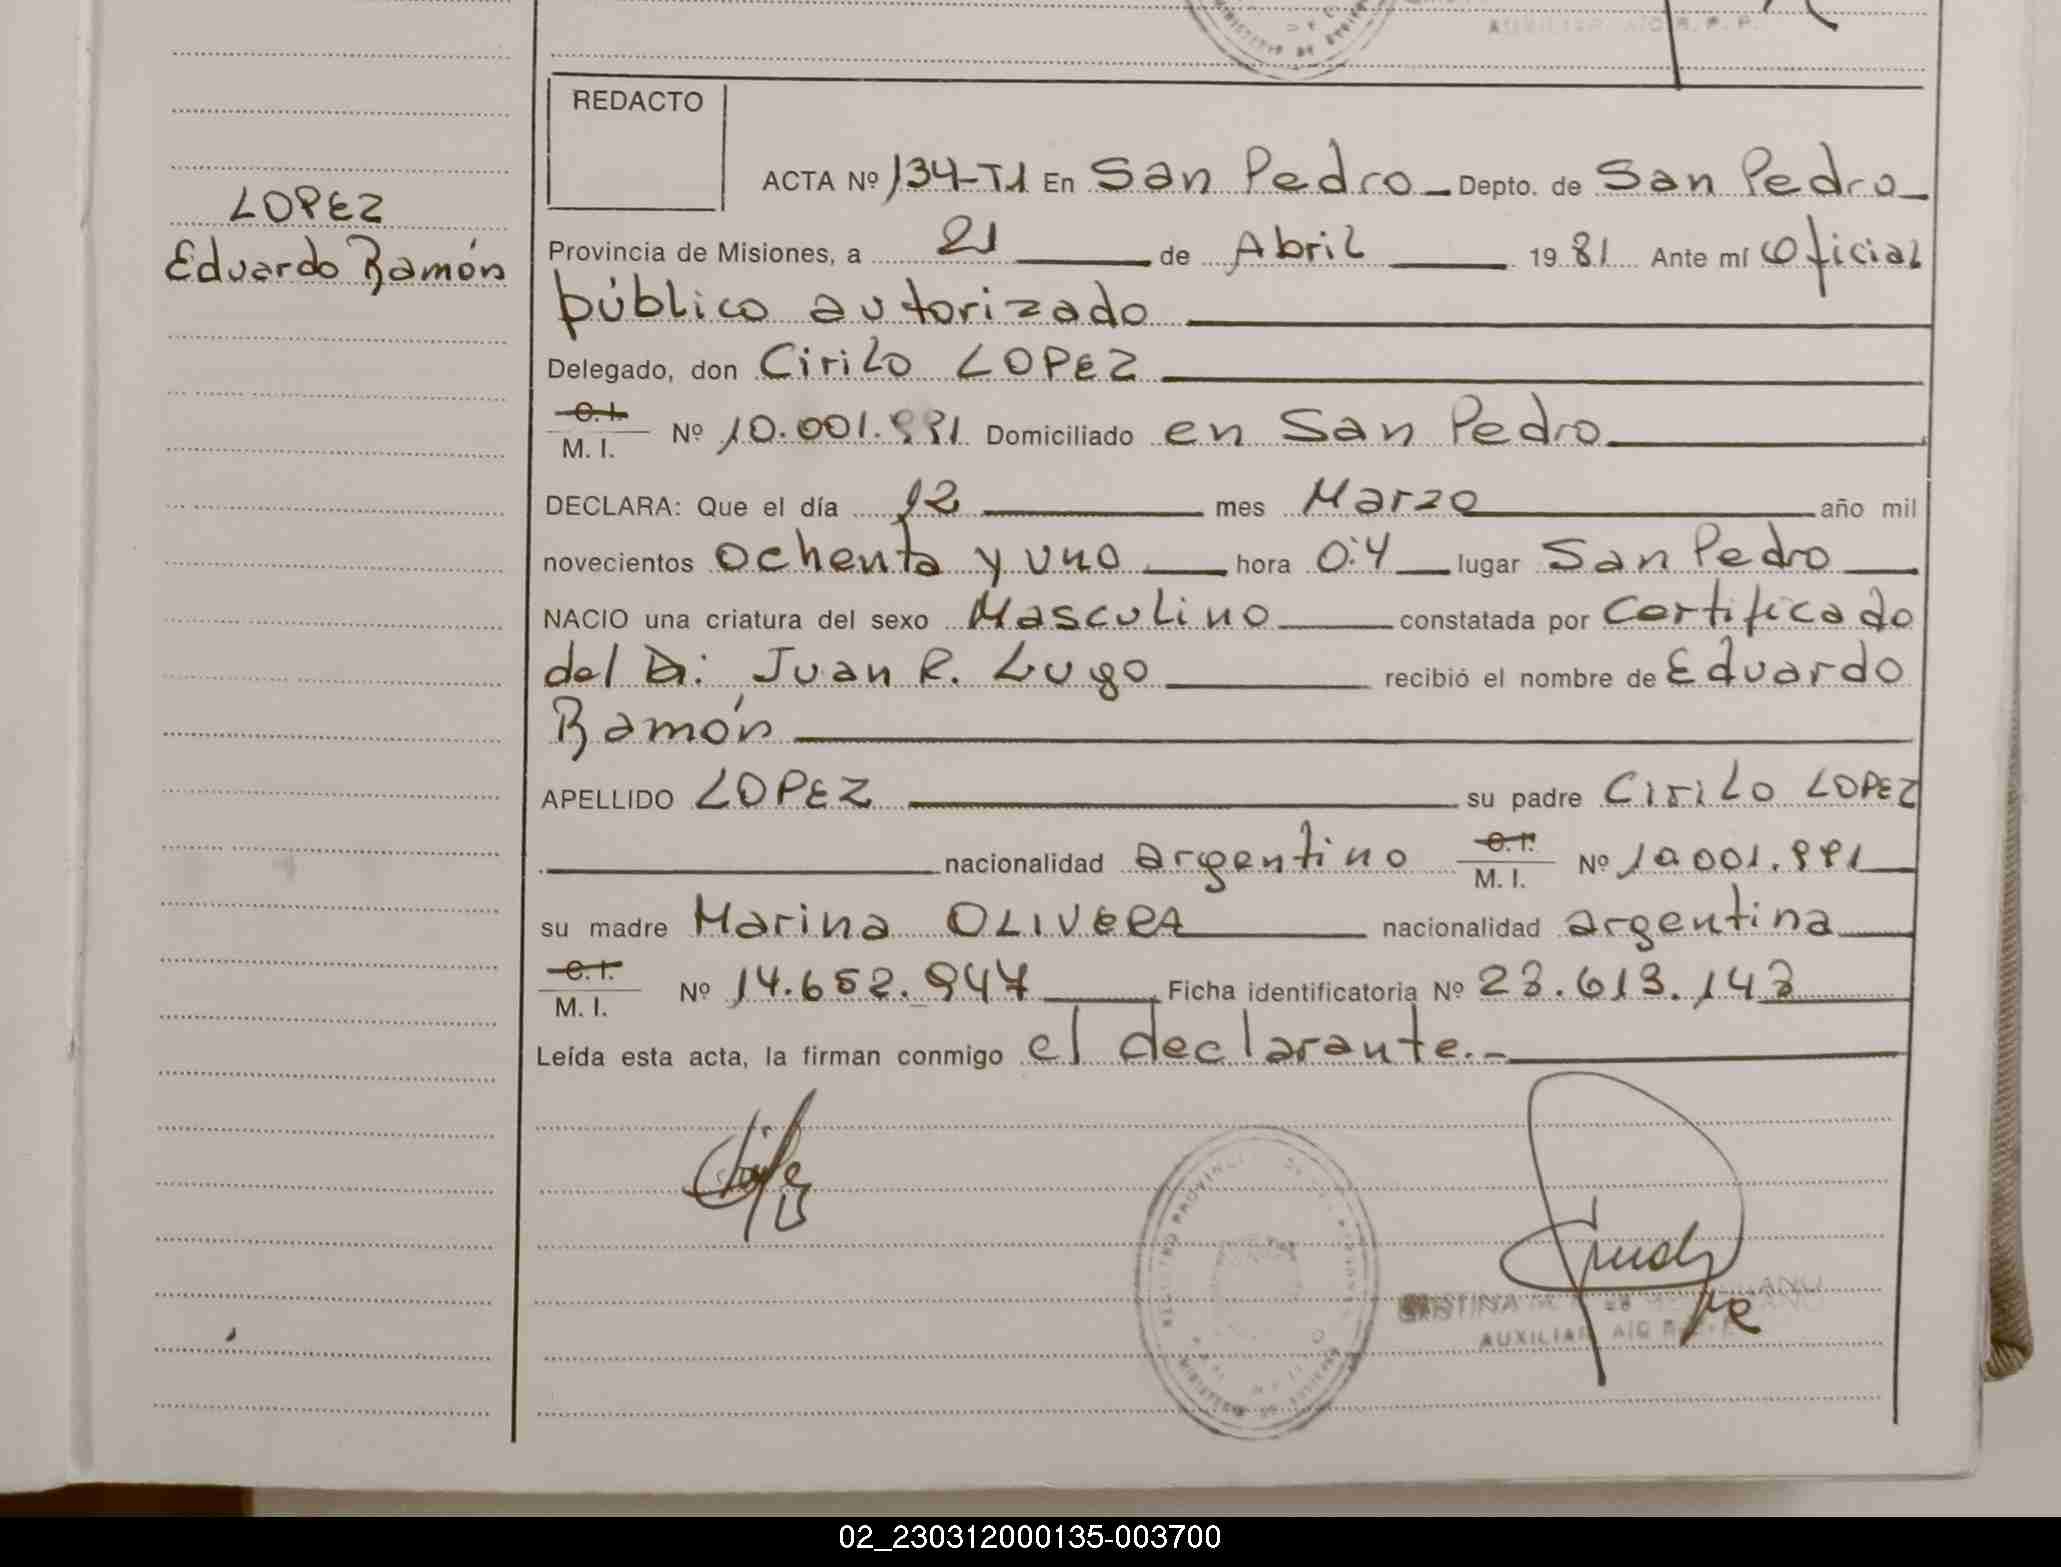 AUXILIAR A/C R. P. P.
REDACTO
ACTA Nº 134-T1 En San Pedro Depto. de San Pedro
LOPEZ
Eduardo Ramón
Provincia de Misiones, a 21 de Abril 1981 Ante mí Oficial
público autorizado
Delegado, don Cirilo LOPEZ
C. I.
M. I. Nº 10.001.991 Domiciliado en San Pedro
DECLARA: Que el día 12 mes Marzo año mil
novecientos ochenta y uno hora 0:4 lugar San Pedro
NACIO una criatura del sexo Masculino constatada por Certificado
del Dr. Juan R. Lugo recibió el nombre de Eduardo
Ramón
APELLIDO LOPEZ su padre Cirilo LOPEZ
nacionalidad argentino C. I.
M. I. Nº 10.001.991
su madre Marina OLIVERA nacionalidad argentina
C. I.
M. I. Nº 14.652.947 Ficha identificatoria Nº 23.613.143
Leída esta acta, la firman conmigo el declarante.-
AUXILIAR A/C
02_230312000135-003700